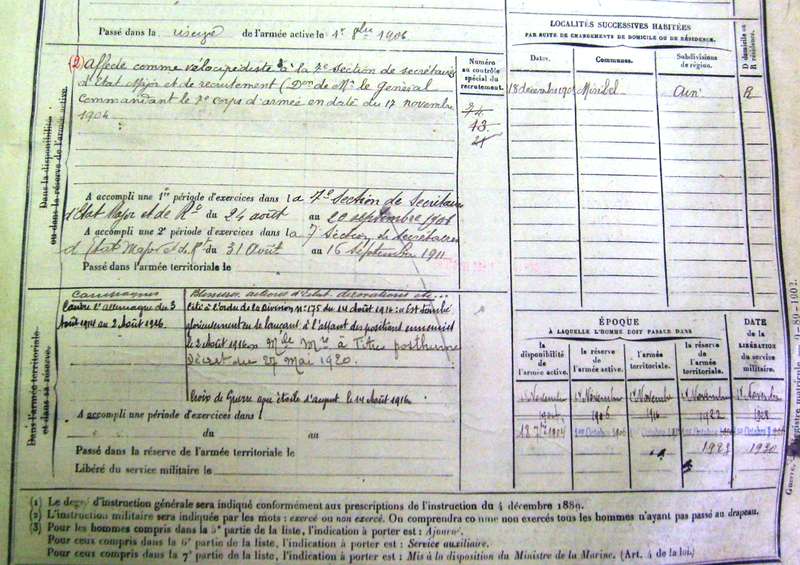 Passé dans la réserve de l'armée active le 1er 8bre 1906
(2) Affecté comme vélocipédiste à la 7e Section de secrétaires
d'Etat Major et de recrutement (Don de Mr le général
Commandant le 7e corps d'armée en date du 17 novembre
1904
Dans la disponibilité
ou dans la réserve de l'armée active.
Numéro
au contrôle
spécial du
recrutement.
13
21
A accompli une 1re période d'exercices dans la 7e Section de Secrétaires
d'Etat Major et de Rt du 24 août au 20 septembre 1908
A accompli une 2e période d'exercices dans la 7e Section de secrétaires
d'Etat Major et de Rt du 31 Août au 16 Septembre 1911
Passé dans l'armée territoriale le
LOCALITÉS SUCCESSIVES HABITÉES
PAR SUITE DE CHANGEMENTS DE DOMICILE OU DE RÉSIDENCE.
Dates. Communes. Subdivisions
de région.
D domicile ou
R résidence.
18 décembre Miribel Ain R
Dans l'armée territoriale
et dans sa réserve.
Campagnes
Contre l'Allemagne du 3
Août 1914 au 2 Août 1916.
Blessures, actions d'éclat, décorations etc...
Cité à l'ordre de la Division n° 175 du 14 août 1916 : "Est tombé
glorieusement en se lançant à l'assaut des positions ennemies
le 2 août 1916" Mlle Mre à Titre posthume
Décret du 27 Mai 1920.
Croix de Guerre avec étoile d'argent le 14 Août 1916.
A accompli une période d'exercices dans
du au
Passé dans la réserve de l'armée territoriale le
Libéré du service militaire le
ÉPOQUE
À LAQUELLE L'HOMME DOIT PASSER DANS
DATE
DE LA
LIBÉRATION
du service
militaire.
la
disponibilité
de l'armée
active.
la réserve
de
l'armée active.
l'armée
territoriale.
la réserve
de
l'armée
territoriale.
1er Novembre 1er Novembre 1er Novembre 1er Novembre 1er Novembre
1906 1916 1922 1928
1er Octobre 1906
1923 1930
(1) Le degré d'instruction générale sera indiqué conformément aux prescriptions de l'instruction du 4 décembre 1889.
(2) L'instruction militaire sera indiquée par les mots : exercé ou non exercé. On comprendra comme non exercés tous les hommes n'ayant pas passé au drapeau.
(3) Pour les hommes compris dans la 5e partie de la liste, l'indication à porter est : Ajourné.
Pour ceux compris dans la 6e partie de la liste, l'indication à porter est : Service auxiliaire.
Pour ceux compris dans la 7e partie de la liste, l'indication à porter est : Mis à la disposition du Ministre de la Marine. (Art. 4 de la loi.)